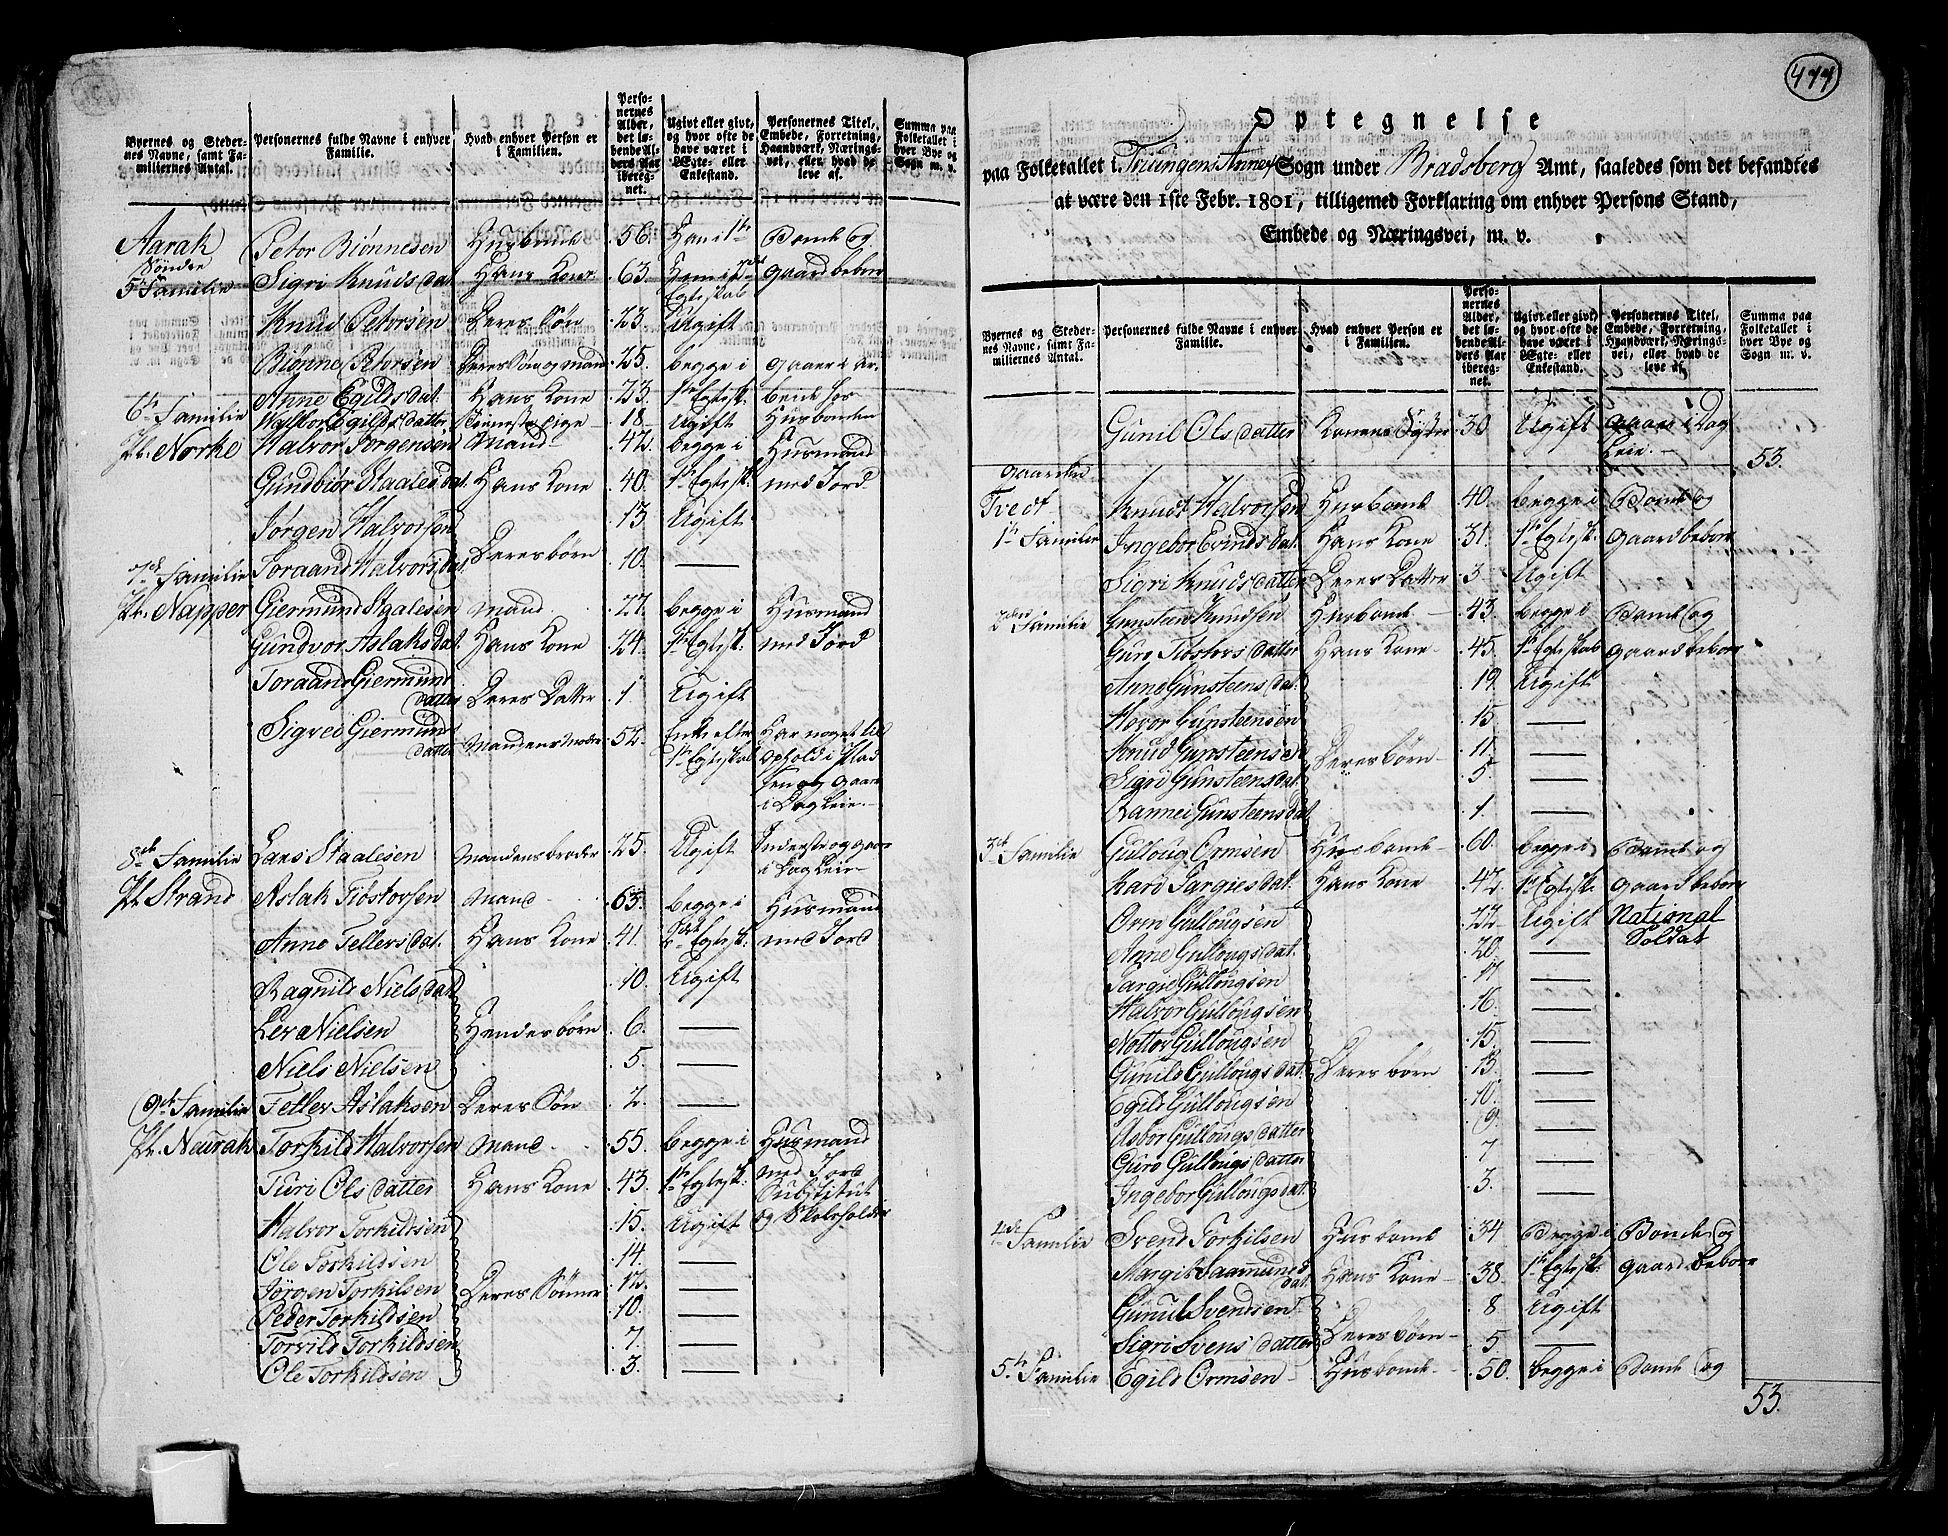 Byernes og Stedernes Navne, samt Familiernes Antal.
Personernes fulde Navne i enhver Familie.
Hvad enhver Person er i Familien.
Personernes Alder, det løbende Alders Aar iberegnet.
Ugivt eller givt, og hvor ofte de have været i Ægte- eller Enkestand.
Personernes Titel, Embede, Forretning, Haandværk, Næringsvei, eller hvad de leve af.
Summa paa Folketallet i hver Bye og Sogn m. v.
Aarak Petor Biønnesen Husbonde 56. Han i 1ste Bonde og
Søndre
5te Familie Sigri Knudsdat. Hans Kone 63. gaardbeboer
Egteskab
Knud Petorsen Deres Søn 23. Ugift
Biønne Petorsen Deres Søn og mand 25. begge i
Anne Egildsdat. Hans Kone 23. 1ste Egtesk.
6te Familie Valbor Egilsdatter Tieneste Pige 18 Ugift Husbonden
Pl. Norke Halvor Jørgensen Mand 42. begge i Husmand
Gundbiør Staalesdat. Hans Kone 40. 1ste Egtesk. med Jord
Jørgen Halvorsen 13. Ugift
Deres børn
7de Familie Toraand Halvorsdat. 10.
Pl. Napper Giermund Staalesen Mand 27. begge i Husmand
Gundvor Aslaksdat. Hans Kone 24. 1ste Egtesk. med Jord
Toraand Giermunds
datter Deres Datter 1. Ugift
Sigred Giermunds
datter Mandens Moder 52. Enke efter 1ste Egteskab Har noget til ophold i Plad
sen og gaar
i Dag Leie
8de Familie Lars Staalesen Mandens broder 25. Ugift Inderste og gaar
i Dag Leie
Pl. Strand Aslak Tiostorsen Mand 63. begge i Husmand
Anne Tellersdat. Hans Kone 41. Egtesk. med Jord
Ragnild Nielsdat. 10. Ugift
Lex Nielsen Hendes børn 6.
Niels Nielsen 5.
9de Familie Teller Aslaksen Deres Søn 2.
Pl. Neurak Torkild Halvorsen Mand 55. begge i Husmand
Turi Olsdatter Hans Kone 43. 1ste Egtesk. med Jord
Substitut
Halvor Torkildsen 15. Ugift og Skoleholder
Ole Torkildsen 14.
Jørgen Torkilsen Deres Sønner 12.
Peder Torkildsen 10.
Torvild Torkildsen 7.
Ole Torkildsen 3.
444
Optegnelse
paa Folketallet i Triungens Annex Sogn under Bradsberg Amt, saaledes som det befandtes
at være den 1ste Febr. 1801, tilligemed Forklaring om enhver Persons Stand,
Embede og Næringsvei, m. v.
Byernes og Stedernes Navne, samt Familiernes Antal.
Personernes fulde Navne i enhver Familie.
Hvad enhver Person er i Familien.
Personernes Alder, det løbende Alders Aar iberegnet.
Ugivt eller givt, og hvor ofte de have været i Ægte- eller Enkestand.
Personernes Titel, Embede, Forretning, Haandværk, Næringsvei, eller hvad de leve af.
Summa paa Folketallet i hver Bye og Sogn m. v.
Gunil Olsdatter Konens Syster 30 Ugift gaar i Dag
Leie. 53.
Gaarden
Tvedt Knud Halvorsen Husbonde 40. begge i Bonde og
1te Familie Ingebor Evindsdat. Hans Kone 31. 1ste Egtesk. gaardbeboer
Sigri Knudsdatter Deres Datter 3 Ugift
2den Familie Gunsteen Knudsen Husbonde 43. begge i Bonde og
Guro Tiostorsdatter Hans Kone 45. 1ste Egteskab gaardbeboer
Anne Gunsteensdat. 19 Ugift
Hovor Gunsteensøn 15.
Knud Gunsteensen 11.
Deres børn
Sigri Gunsteensdat. 5
Rannei Gunsteensdat. 1.
3de Familie Gulloug Ormsen Husbonde 60. begge i Bonde og
Kari Targiesdat. Hans Kone 42. 1ste Egtesk. gaardbeboer
Orm Gullougsen 22 Ugift National
Soldat
Anne Gullougsdat. 20
Targie Gullougsen 17
Halvor Gullougsen 16.
Nottor Gullougsen 15.
Gunild Gullougsdat. Deres børn 13.
Egild Gullougsen 10.
Asbor Gullougsdatter 9
Guro Gullougsdatter 7
Ingebor Gullougsdat. 3.
4de Familie Svend Torkilsen Husbonde 34 Begge i Bonde og
Margit Saamunds
dat. Hans Kone 38. 1ste Egtesk. gaardbeboer
Gunul Svendsen 8 Ugift
Sigri Svensdatter Deres børn 5
5te Familie Egild Ormsen Husbonde 50. begge i Bonde og
53.